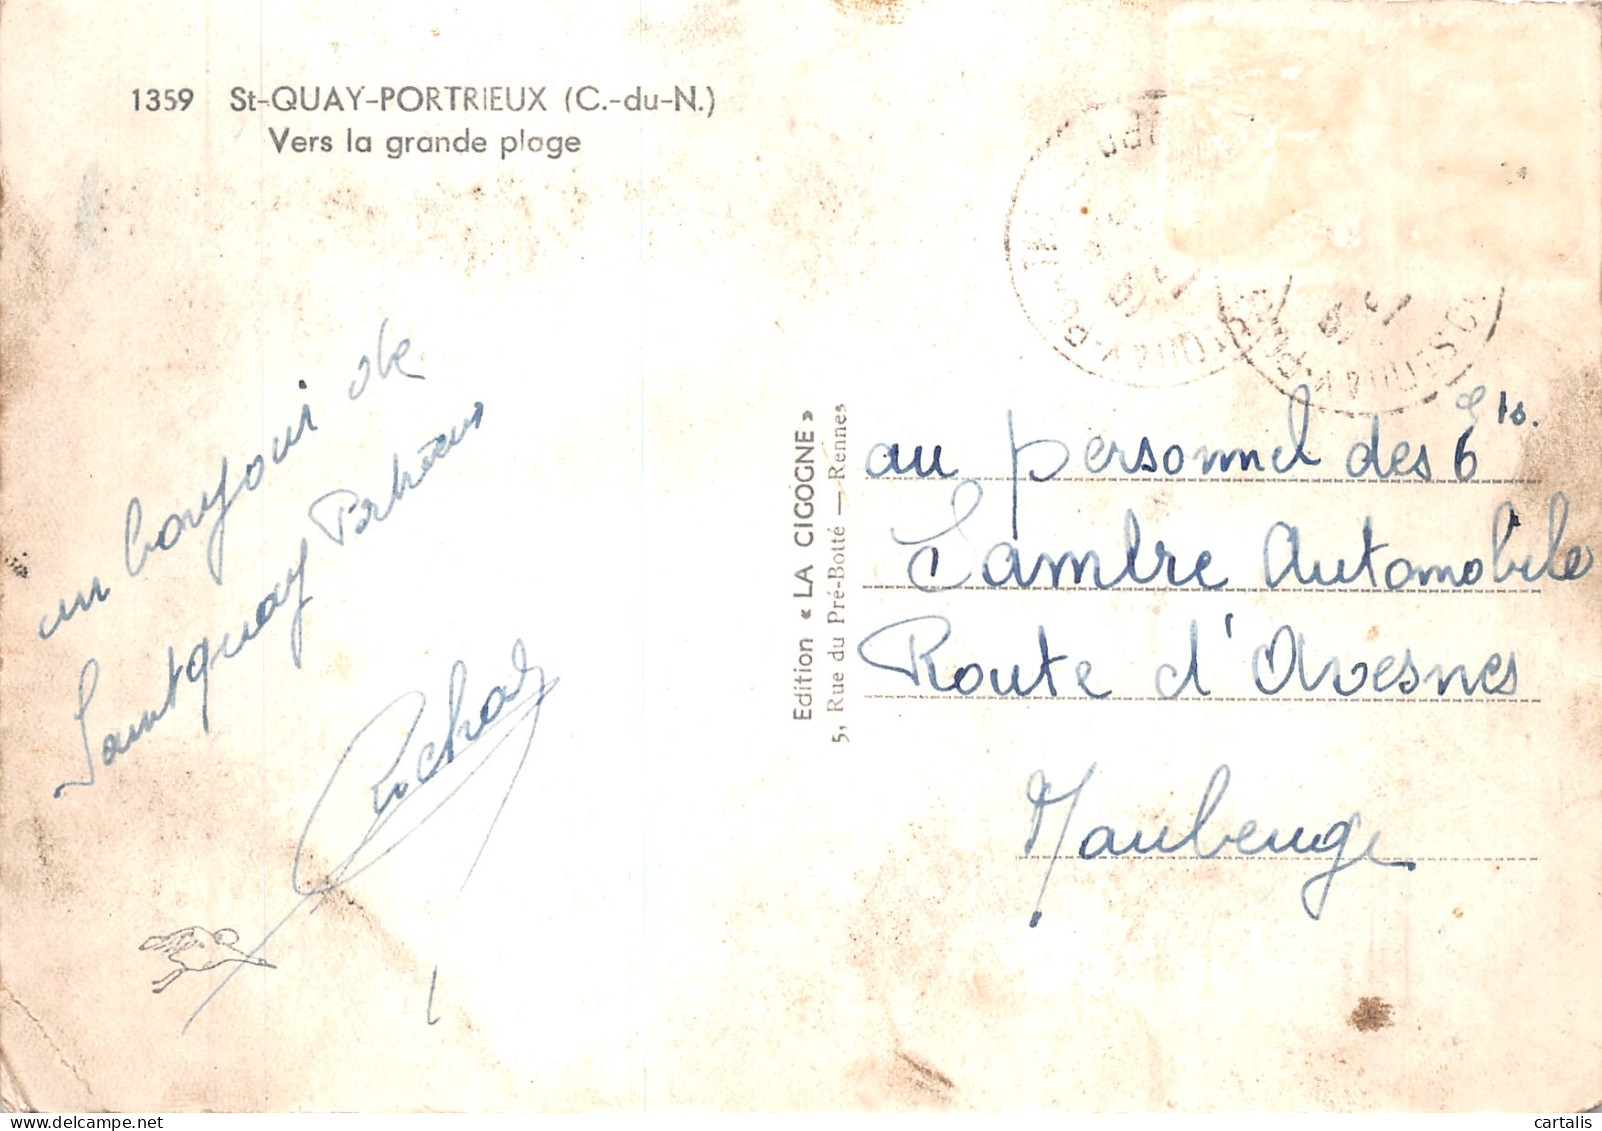 1359 St-QUAY-PORTRIEUX (C.-du-N.)
Vers la grande plage
un bonjour de
Saintquay Portrieux
Edition « LA CIGOGNE »
5, Rue du Pré-Botté — Rennes
au personnel des Ets.
Sambre Automobile
Route d'Avesnes
Maubeuge
cartalis